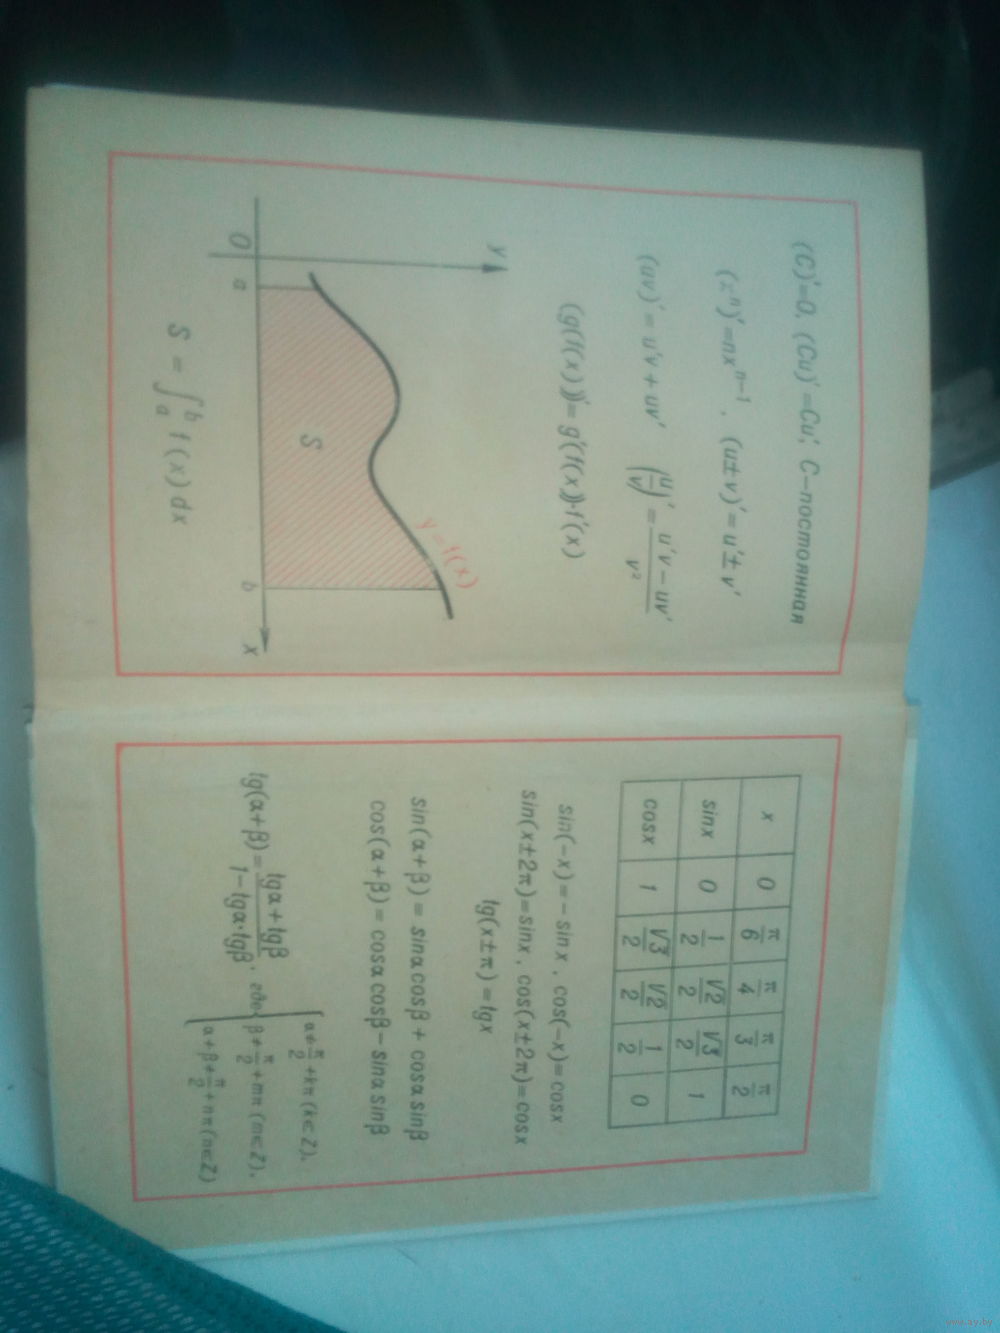 (C)'=0, (Cu)'=Cu', C-постоянная
(xⁿ)'=nxⁿ⁻¹, (u±v)'=u'±v'
(uv)'=u'v+uv' (u/v)'=(u'v-uv')/v²
(g(f(x)))'=g'(f(x))·f'(x)
y
y=f(x)
S
0 a b x
S = ∫ₐᵇ f(x)dx
x 0 π/6 π/4 π/3 π/2
sinx 0 1/2 √2/2 √3/2 1
cosx 1 √3/2 √2/2 1/2 0
sin(-x)=-sinx, cos(-x)=cosx
sin(x±2π)=sinx, cos(x±2π)=cosx
tg(x±π)=tgx
sin(α+β)=sinαcosβ+cosαsinβ
cos(α+β)=cosαcosβ-sinαsinβ
tg(α+β)=(tgα+tgβ)/(1-tgα·tgβ), где
α≠π/2+kπ(k∈Z),
β≠π/2+mπ(m∈Z),
α+β≠π/2+nπ(n∈Z)
www.ay.by